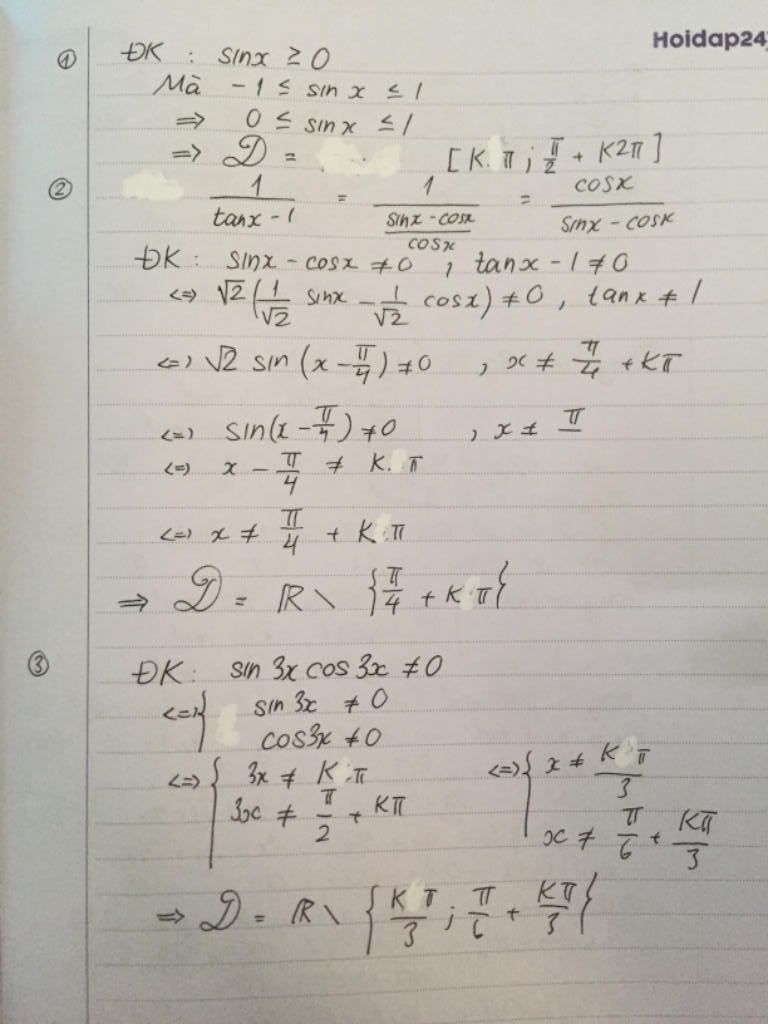 Hoidap247
① ĐK : sinx ≥ 0
Mà -1 ≤ sin x ≤ 1
=> 0 ≤ sin x ≤ 1
=> D = [K π ; π/2 + K2π]
② 1/(tanx - 1) = 1/((sinx - cosx)/cosx) = cosx/(sinx - cosx)
ĐK : sinx - cosx ≠ 0 , tanx - 1 ≠ 0
<=> √2(1/√2 sinx - 1/√2 cosx) ≠ 0 , tanx ≠ 1
<=> √2 sin (x - π/4) ≠ 0 , x ≠ π/4 + Kπ
<=> sin(x - π/4) ≠ 0 , x ≠ π
<=> x - π/4 ≠ K. π
<=> x ≠ π/4 + K π
=> D = R \ {π/4 + K π}
③ ĐK : sin 3x cos 3x ≠ 0
<=> { sin 3x ≠ 0
cos3x ≠ 0
<=> { 3x ≠ K π <=> { x ≠ K π/3
3x ≠ π/2 + Kπ x ≠ π/6 + Kπ/3
=> D = R \ {K π/3 ; π/6 + Kπ/3}